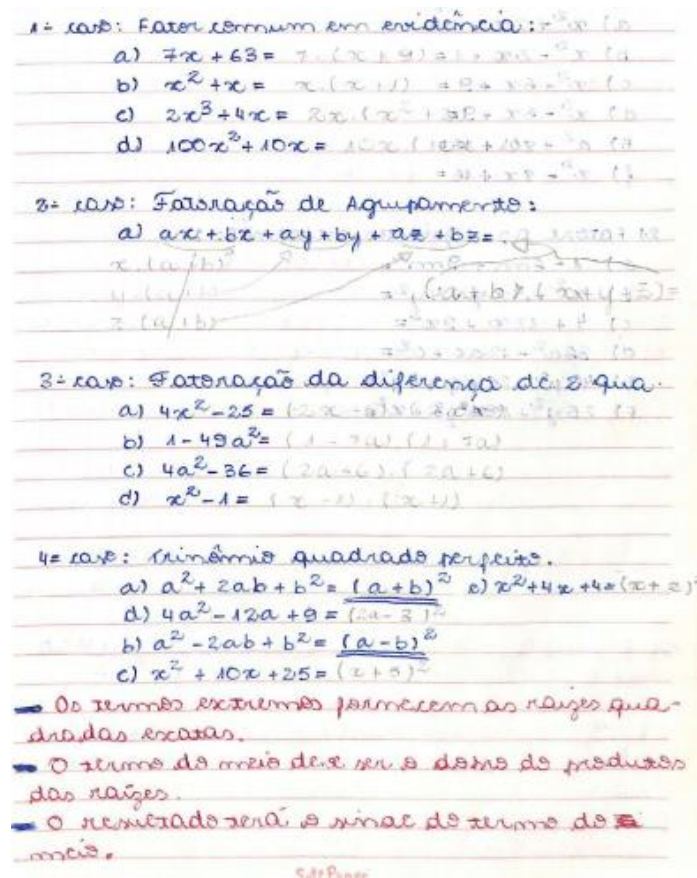 1º caso: Fator comum em evidência:
a) 7x + 63 = 7.(x + 9)
b) x² + x = x.(x+1)
c) 2x³ + 4x = 2x.(x² +
d) 100x² + 10x = 10x (
2º caso: Fatoração de Agrupamento:
a) ax + bx + ay + by + az + bz =
x.(a+b)
y.(a+b)
z (a+b)
(a+b).(x+y+z)=
3º caso: Fatoração da diferença de 2 qua.
a) 4x² - 25 = (2x -
b) 1 - 49a² = (1 - 7a).(1+7a)
c) 4a² - 36 = (2a-6).(2a+6)
d) x² - 1 = (x-1).(x+1)
4º caso: trinômio quadrado perfeito.
a) a² + 2ab + b² = (a+b)² e) x²+4x+4=(x+2)²
d) 4a² - 12a + 9 = (2a-3)²
b) a² - 2ab + b² = (a-b)²
c) x² + 10x + 25 = (x+5)²
- Os termos extremos fornecem as raizes qua-
dradas exatas.
- O termo do meio deve ser o dobro do produtos
das raizes.
- O resultado será o sinal do termo do
meio.